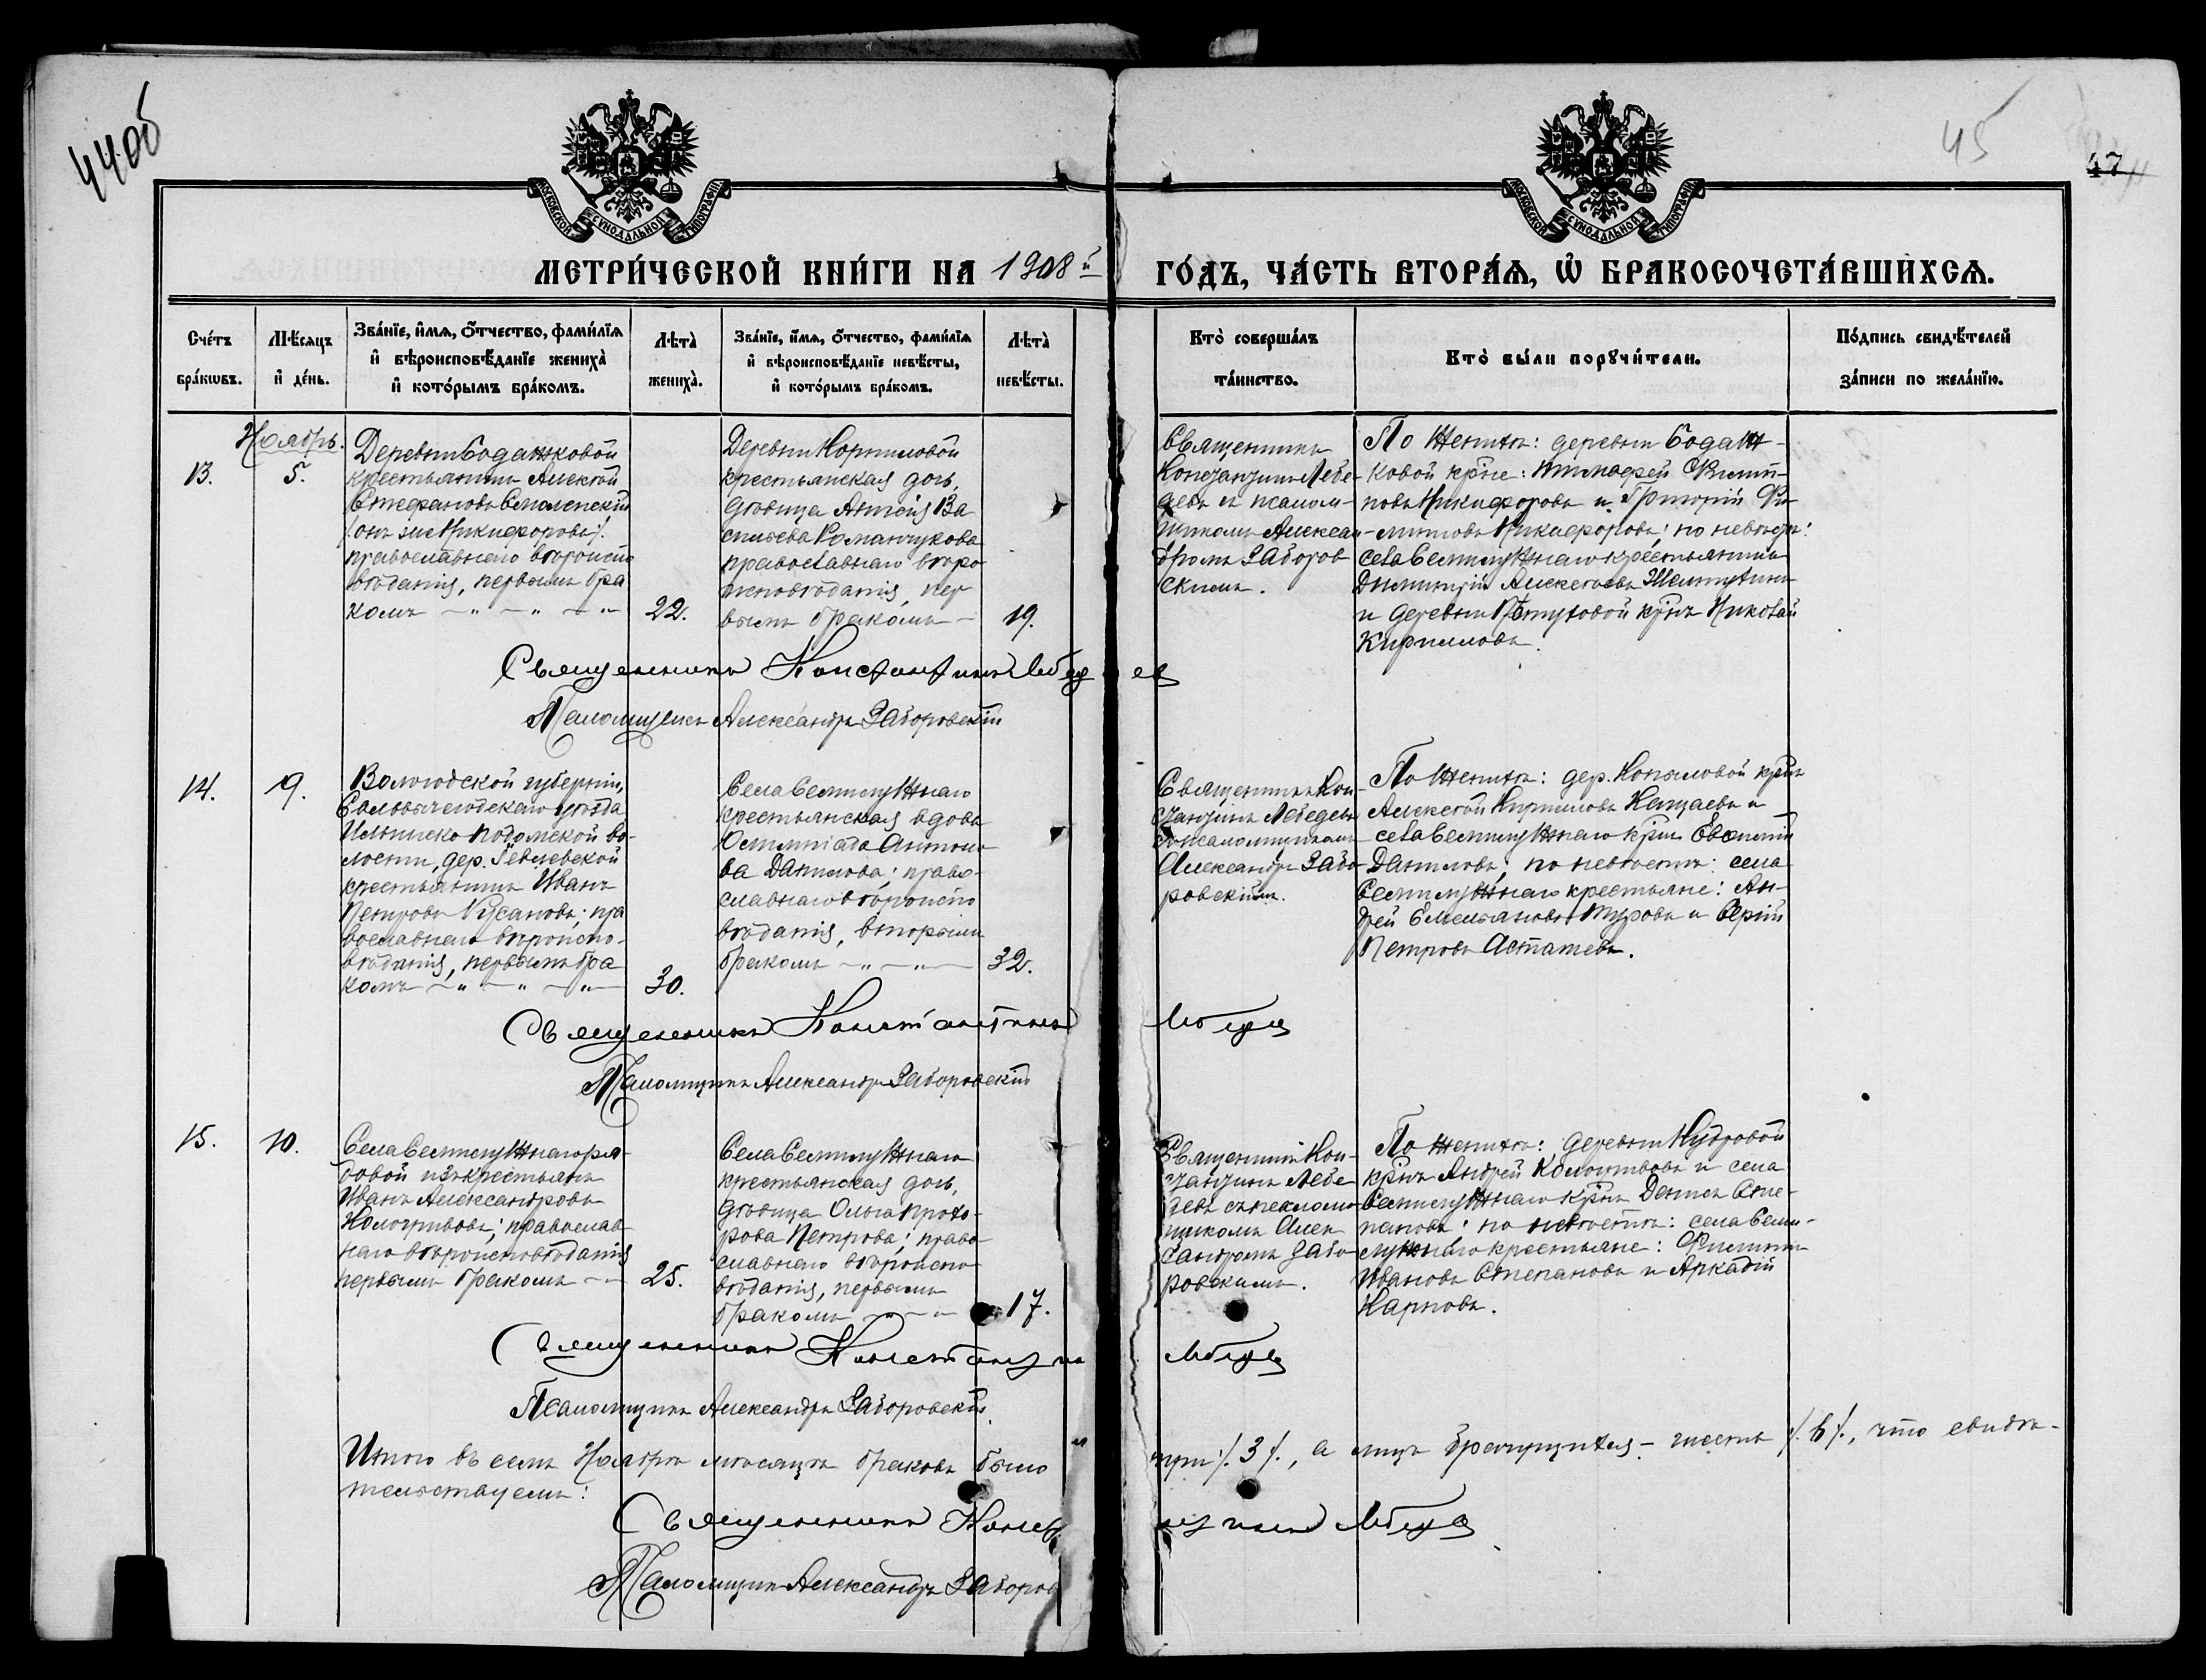 44об
45
47
МОСКОВСКОЙ СѴНОДАЛЬНОЙ ТИПОГРАФІИ
МОСКОВСКОЙ СѴНОДАЛЬНОЙ ТИПОГРАФІИ
МЕТРИ́ЧЕСКОЙ КНИ́ГИ НА 1908й
ГО́ДЪ, ЧА́СТЬ ВТОРА́Я, Ѡ҆ БРАКОСОЧЕТА́ВШИХСЯ.
Сче́тъ
бра́кѡвъ.
Мѣ́сяцъ
и҆ де́нь.
Зва́нїе, и҆́мя, о҆́тчество, фами́лїя
и҆ вѣроисповѣ́данїе жениха̀
и҆ кото́рымъ бра́комъ.
Лѣта̀
жениха̀.
Зва́нїе, и҆́мя, о҆́тчество, фами́лїя
и҆ вѣроисповѣ́данїе невѣ́сты,
и҆ кото́рымъ бра́комъ.
Лѣта̀
невѣ́сты.
Кто̀ соверша́лъ
та́инство.
Кто̀ бы́ли порꙋчи́тели.
По́дпись свидѣ́телей
за́писи по жела́нїю.
Ноябрь.
13.
5.
Деревни Бодажковой
крестьянинъ Алексѣй
Стефановъ Смоленскій
/онъ же Никифоровъ/.
православнаго вѣроиспо
вѣданія, первымъ бра
комъ — „ — „ — „ —
22.
Деревни Корниловой
крестьянская дочь,
дѣвица Анисія Ва
сильева Романчукова
православнаго вѣро
исповѣданія, пер
вымъ бракомъ —
19.
Священникъ
Константинъ Лебе-
девъ съ псалом-
щикомъ Алексан-
дромъ Заборов
скимъ.
По женихѣ: деревни Бодаж-
ковой кр̃не: Тимофей Филип-
повъ Никифоровъ и Григорій Фи-
липповъ Никифоровъ; по невѣстѣ:
села Семилужнаго крестьянинъ
Димитрій Алексѣевъ Шелпутинъ
и деревни Пѣтуховой кр̃нъ Николай
Кирилловъ.
Священникъ Константинъ Лебедев
Псаломщикъ Александръ Заборовскій
14.
9.
Вологодской губерніи,
Сольвычегодскаго уѣзда
Ильинско-Подомской во-
лости, дер.
крестьянинъ Иванъ
Петровъ Русановъ; пра
вославнаго вѣроиспо-
вѣданія, первымъ бра
комъ — „ — „ — „ —
30.
Села Семилужнаго
крестьянская вдова
Олимпіада Антоно-
ва Данилова; право-
славнаго вѣроиспо
вѣданія, вторымъ
бракомъ — „ — „ —
32.
Священникъ Кон-
стантинъ Лебедевъ
съ псаломщикомъ
Александр Забо-
ровскимъ.
По женихѣ: дер. Копыловой кр̃нъ
Алексѣй Кирилловъ Нащаевъ и
села Семилужнаго кр̃нъ Евсигній
Даниловъ; по невѣстѣ: села
Семилужнаго крестьяне: Ан-
дрей Емельяновъ Туровъ и Сергій
Петровъ Асташевъ.
Священникъ Константинъ Лебедев
Псаломщикъ Александръ Заборовскій
15.
10.
Села Семилужнаго ря-
довой изъ крестьянъ
Иванъ Александровъ
Кологривовъ; православ-
наго вѣроисповѣданія
первымъ бракомъ — „ —
25.
Села Семилужнаго
крестьянская дочь,
дѣвица Ольга Прохо-
рова Петрова; право-
славнаго вѣроиспо
вѣданія, первымъ
бракомъ — „ — „
17.
Священникъ Кон-
стантинъ Лебе-
девъ съ псалом-
щикомъ Алек-
сандромъ Забо-
ровскимъ.
По женихѣ: деревни Кудровой
кр̃нъ Андрей Кологривовъ и села
Семилужнаго кр̃нъ Денисъ Сте-
пановъ; по невѣстѣ: села Семи-
лужнаго крестьяне: Филиппъ
Ивановъ Степановъ и Аркадій
Карповъ.
Священникъ Константин Лебедев
Псаломщикъ Александръ Заборовскій.
Итого въ семъ Ноябрѣ мѣсяцѣ браковъ было три /.3/., а лицъ брачущихся — шесть /.6/., что свидѣ-
тельствуемъ:
Священникъ Константинъ Лебедев
Псаломщикъ Александръ Заборов